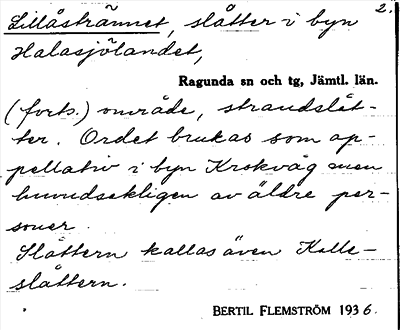 Lillåstrännet, slåtter i byn 2.
Halasjölandet,
Ragunda sn och tg, Jämtl. län.
(forts.) område, strandslåt-
ter. Ordet brukas som ap-
pellativ i byn Krokvåg men
huvudsakligen av äldre per-
soner.
Slåttern kallas även Kalle-
slåttern.
BERTIL FLEMSTRÖM 1936.